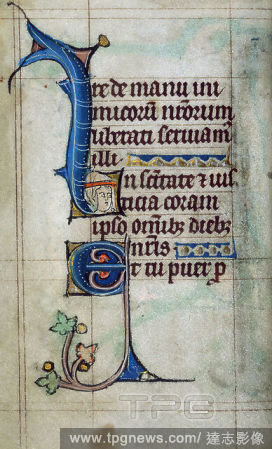 re de manu ini
micorū nr̄orum
liberati seruiam̄
illi.
In sc̄itate ⁊ ius
ticia coram
ipso omībꝫ diebꝫ
nr̄is
Et tu puer p
TPG
www.tpgnews.com/ 達志影像